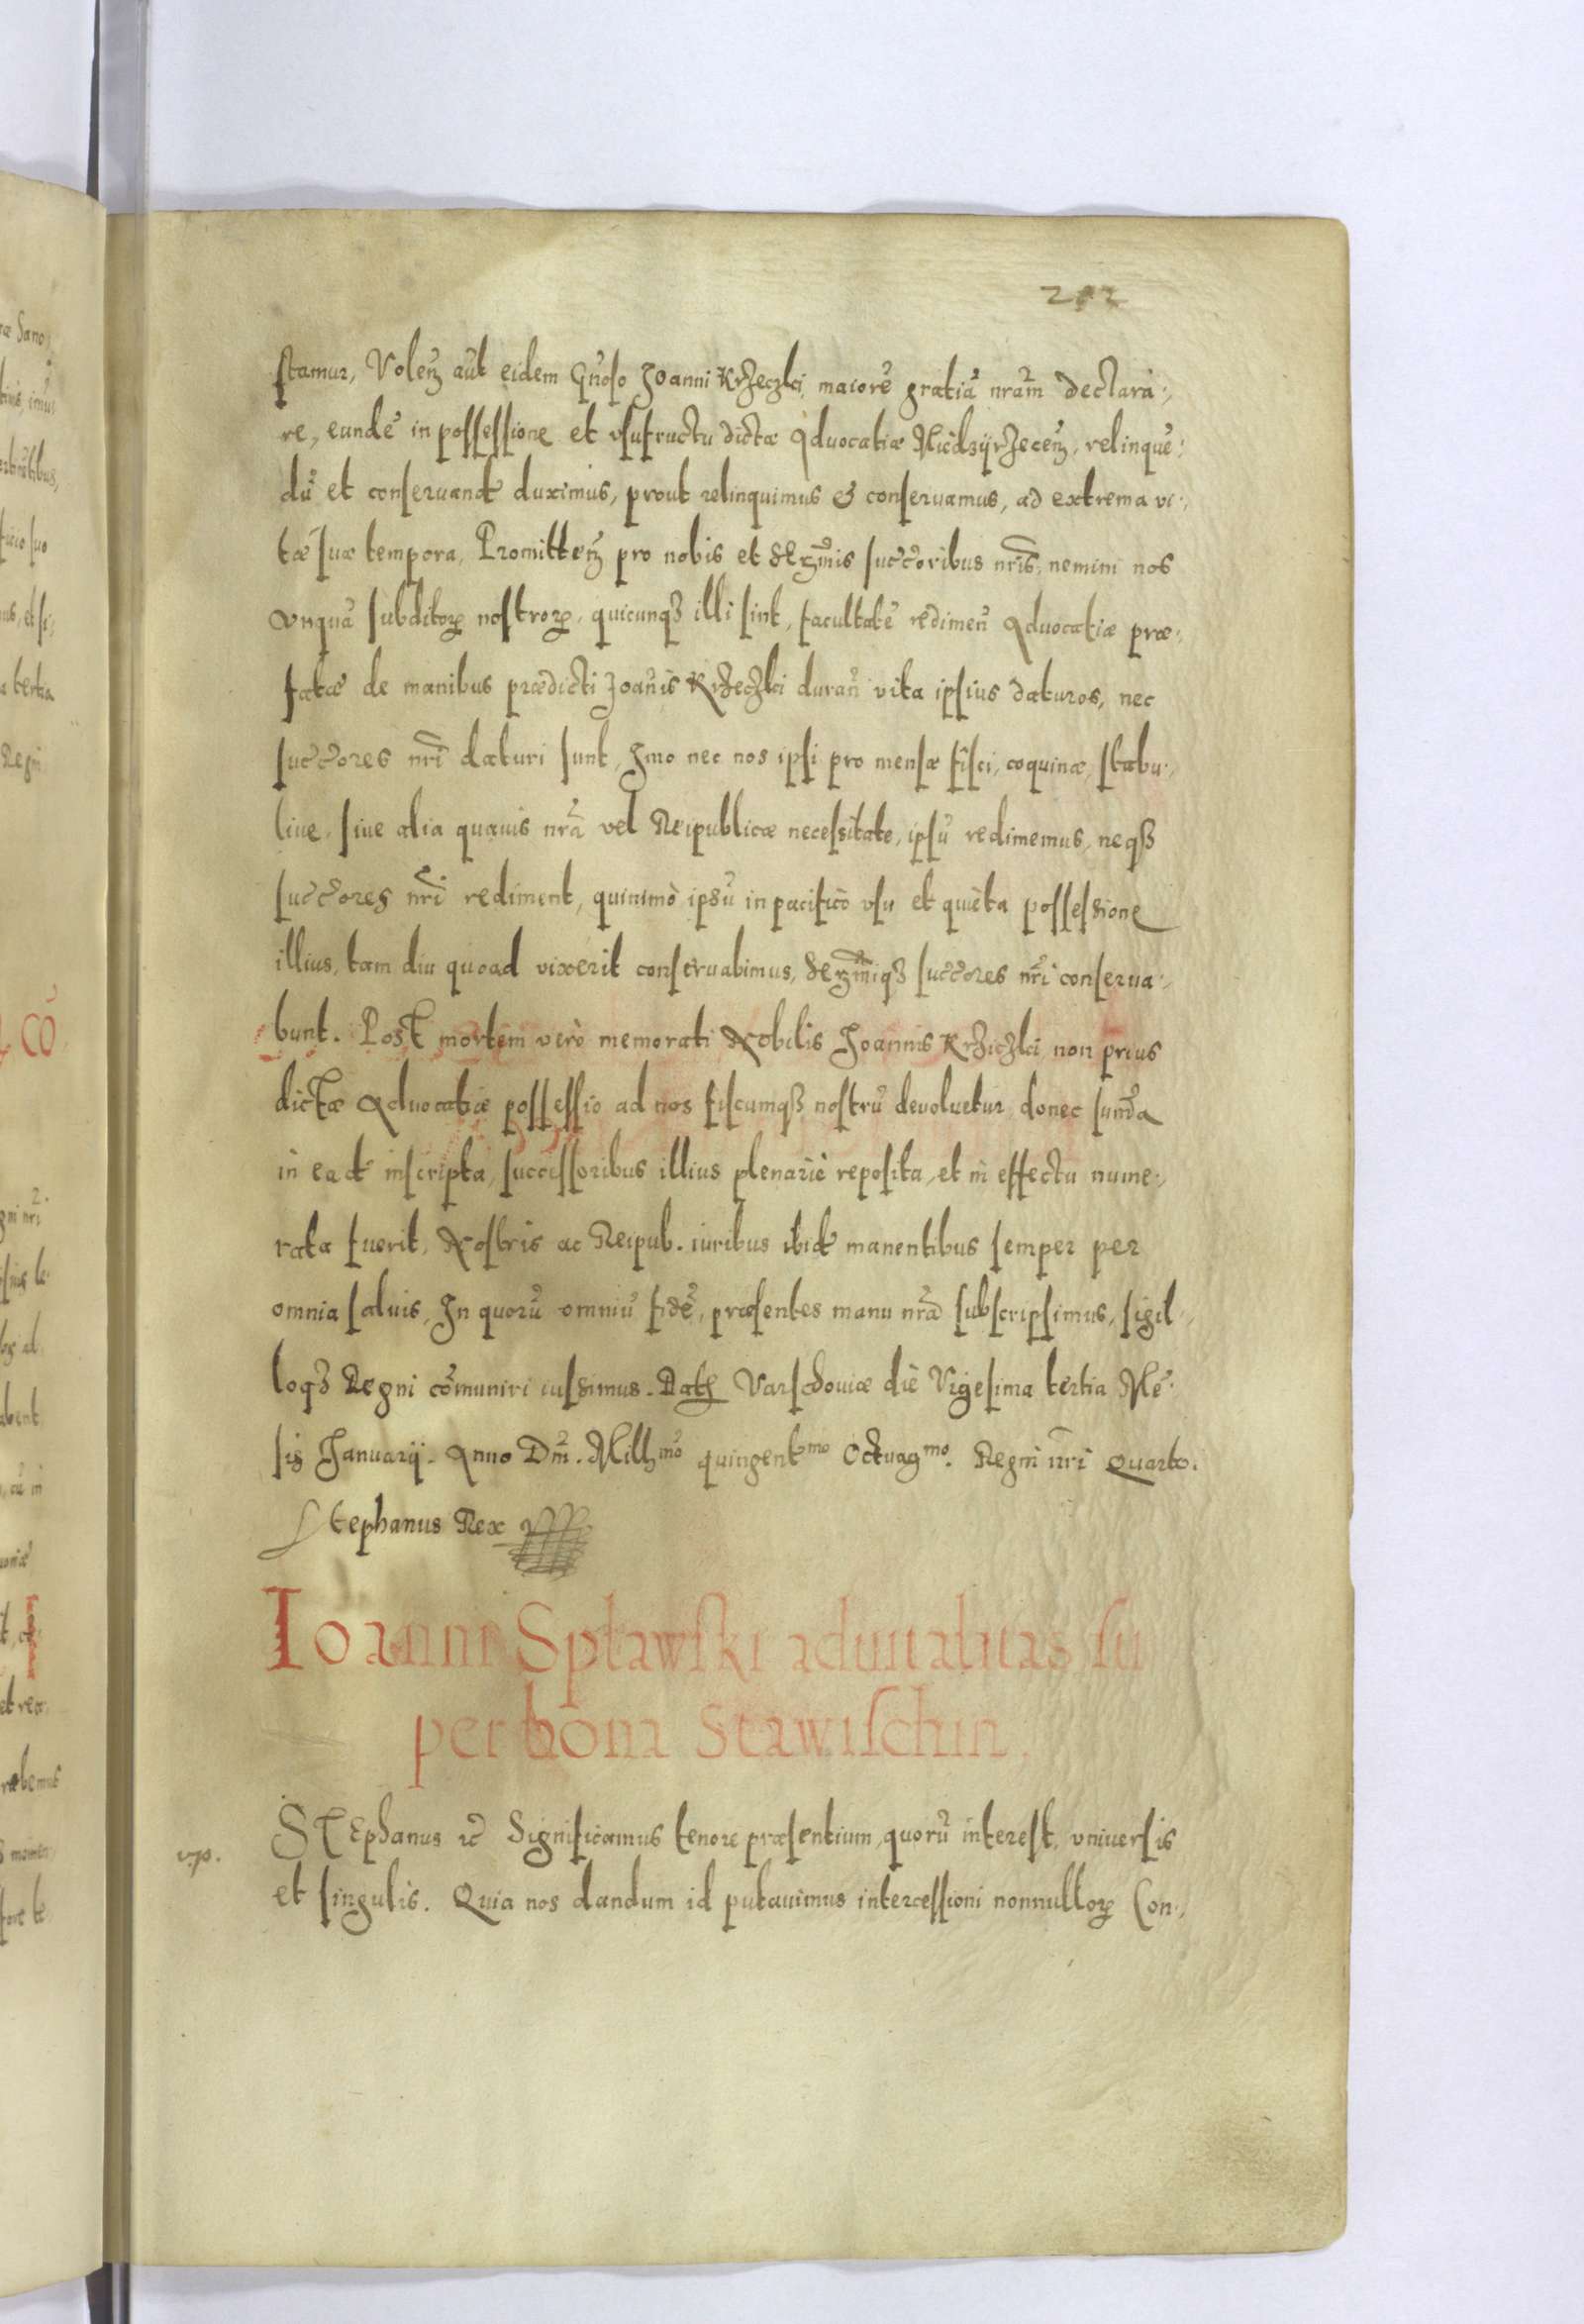 202
stamur, Volen̄ aūt eidem Gnōso Joanni Krzeczki, maiorē gratiā nrām declara-
re, eundē in possessione et vsufructu dictæ Aduocatiæ Miedzijrzecen̄, relinquē-
dū et conseruand duximus, prout relinquimus & conseruamus, ad extrema vi-
tæ suæ tempora, Promitten̄ pro nobis et Serm̄is succōribus nrīs, nemini nos
vnquā subditorꝝ nostrorꝝ, quicunqꝫ illi sint, facultatē redimen̄ Aduocatiæ præ-
fatæ de manibus prædicti Joan̄is Krzeczki duran̄ vita ipsius daturos, nec
succōres nrī daturi sunt, Jmo nec nos ipsi pro mensæ fisci, coquinæ, stabu-
liue, siue alia quauis nrā vel Reipublicæ necessitate, ipsū redimemus, neqꝫ
succōres nrī rediment, quinimò ipsū in pacifico vsu et quieta possessione
illius, tam diu quoad vixerit conseruabimus, Serm̄iqꝫ succōres nrī conserua-
bunt. Post mortem verò memorati Nobilis Joannis Krziczki non prius
dictæ Aduocatiæ possessio ad nos fiscumqꝫ nostrū deuoluetur, donec sum̄a
in ead inscripta, successoribus illius plenariè reposita, et in effectu nume-
rata fuerit, Nostris ac Reipub. iuribus ibid manentibus semper per
omnia saluis, Jn quorū omniū fidē, præsentes manu nrā subscripsimus, sigil-
loqꝫ Regni cōmuniri iussimus. Dat Varschouiæ die Vigesima tertia Mē-
sis Januarij. Anno Dn̄i. Mill̄mo quingentmo Octuagmo. Regni nrī Quarto.
Stephanus Rex
Ioanni Spławski aduitalitas su
per bona Stawischin.
STEphanus ꝛc̄ Significamus tenore præsentium, quorū interest, vniuersis
et singulis. Quia nos dandum id putauimus intercessioni nonnullorꝝ Con-